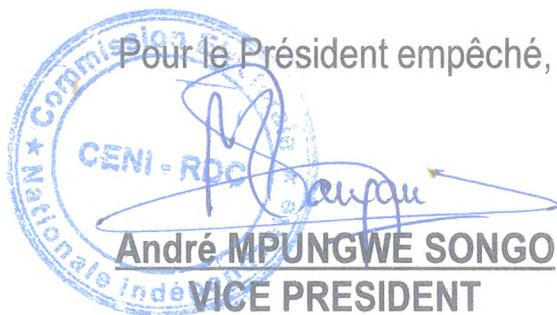 Pour le Président empêché,
Commission
Nationale
CENI - RDC
André MPUNGWE SONGO
VICE PRESIDENT